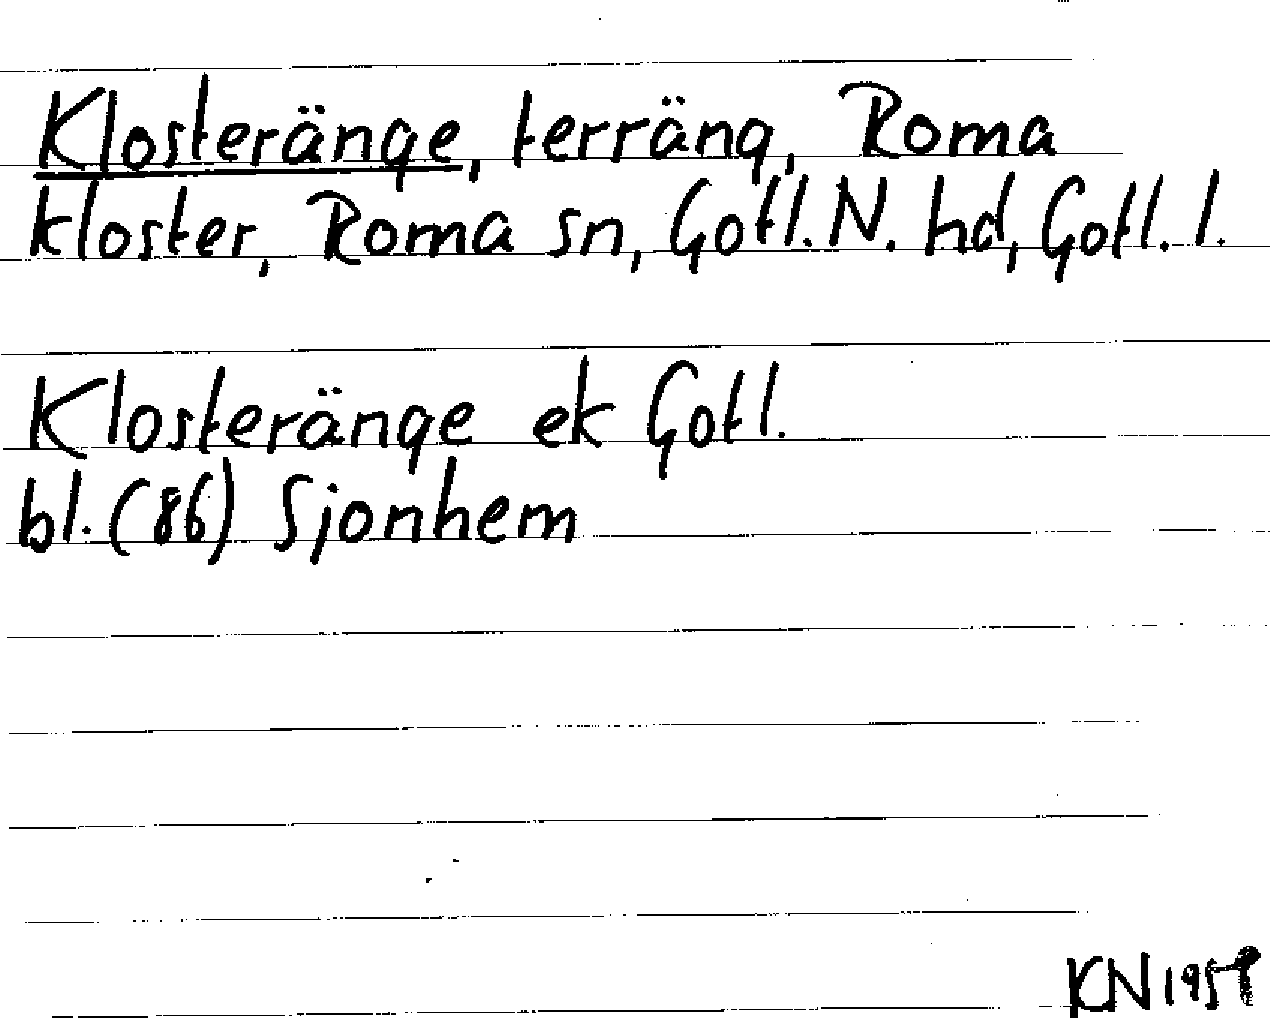 Klosteränge, terräng, Roma
kloster, Roma sn, Gotl. N. hd, Gotl. l.
Klosteränge ek Gotl.
bl. (86) Sjonhem
KN 1959